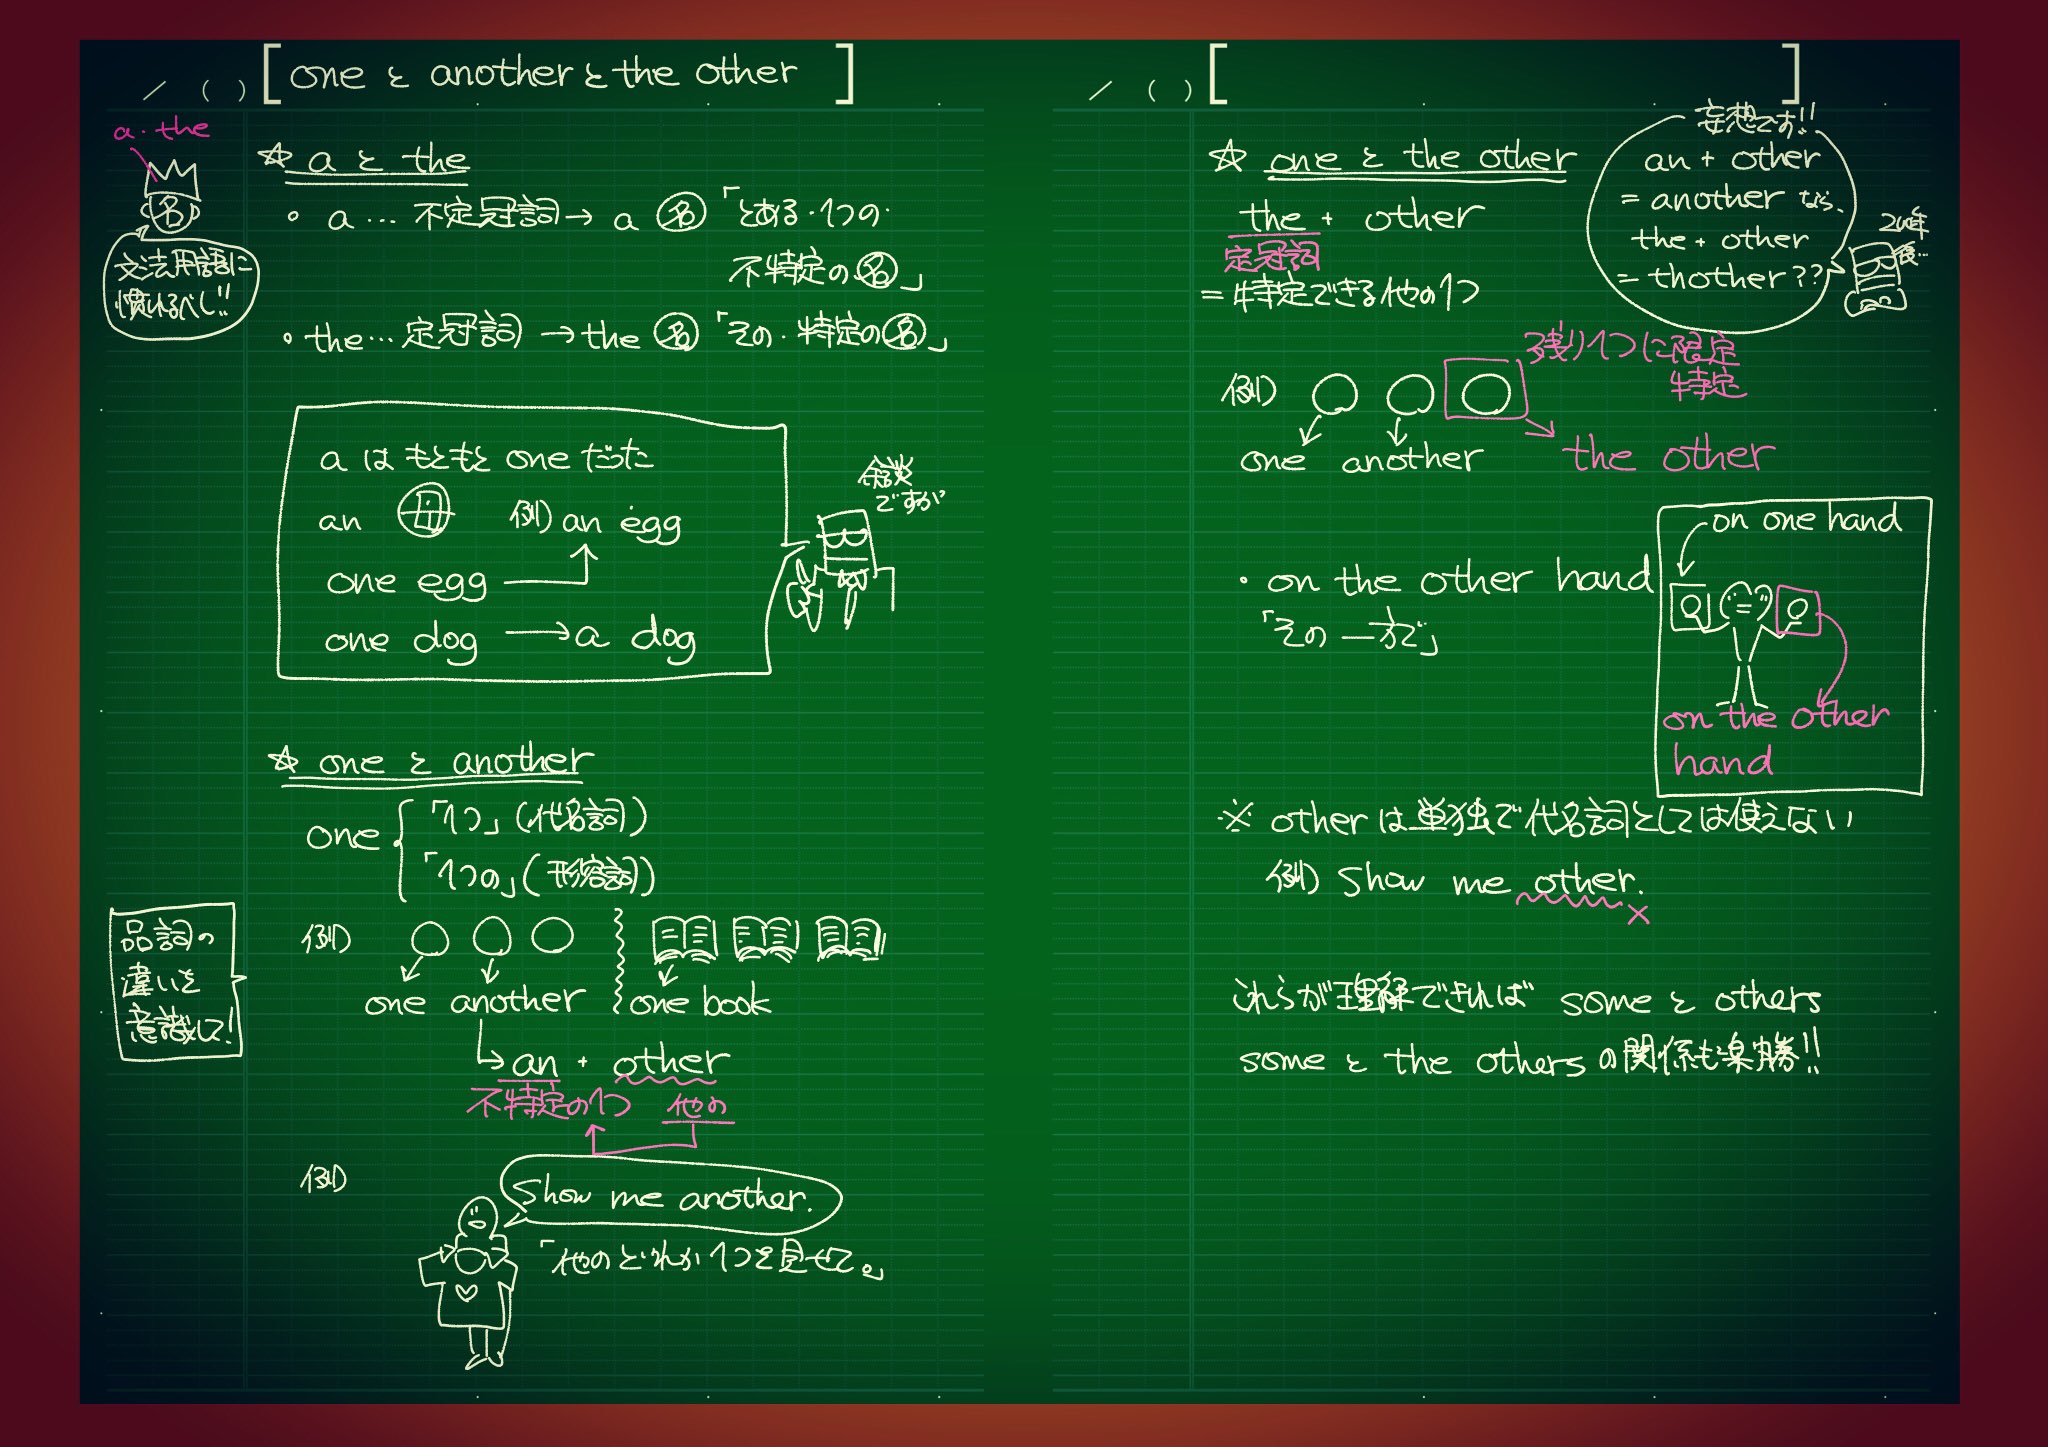 ／ （ ） [ one と another と the other ]
a・the
名
文法用語に
慣れるべし!!
☆ a と the
・a … 不定冠詞 → a 名 「とある・1つの・
不特定の名」
・the … 定冠詞 → the 名 「その・特定の名」
a は もともと one だった
an 母 例) an egg
one egg
one dog → a dog
余談
ですが
☆ one と another
one { 「1つ」(代名詞)
「1つの」(形容詞)
品詞の
違いを
意識して!
例)
one another one book
an + other
不特定の1つ 他の
例)
Show me another.
「他のどれか1つを見せて。」
／ （ ） [ ]
☆ one と the other
the + other
定冠詞
= 特定できる他の1つ
妄想です!!
an + other
= another なら、
the + other
= thother ??
200年
後…
残り1つに限定
特定
例)
one another the other
・on the other hand
「その一方で」
on one hand
on the other
hand
※ other は単独で代名詞としては使えない
例) Show me other. ×
これらが理解できれば some と others
some と the others の関係も楽勝!!